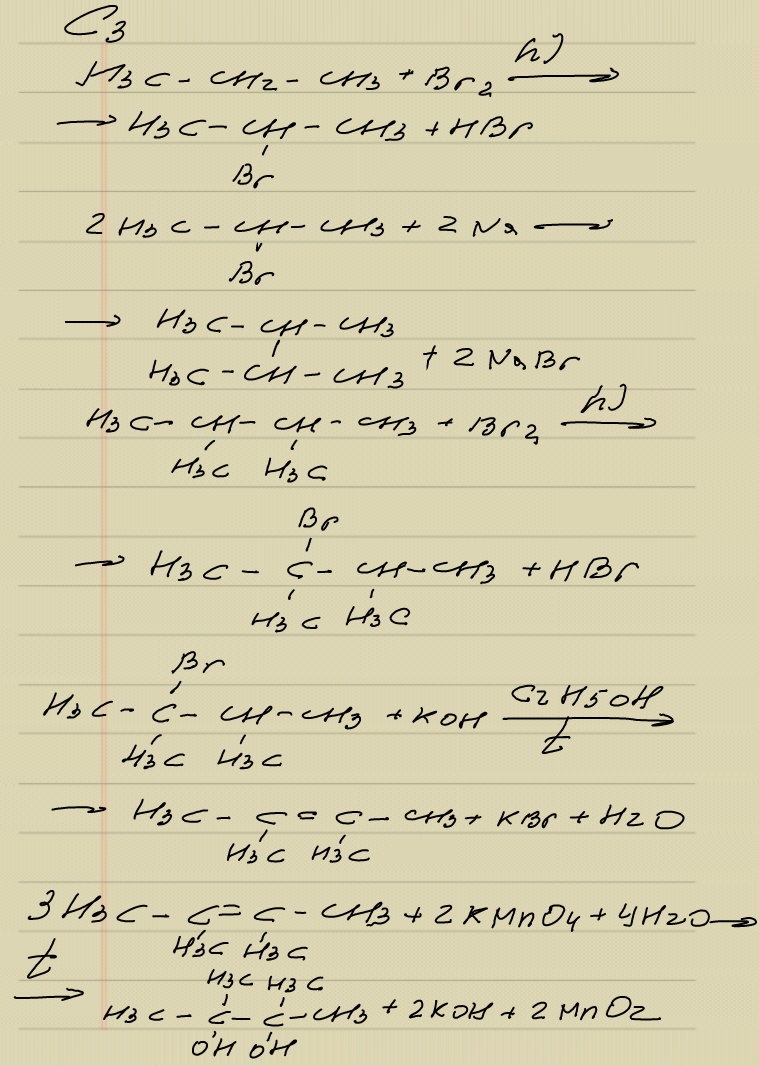 C3
H3C - CH2 - CH3 + Br2 hν →
→ H3C - CH - CH3 + HBr
Br
2 H3C - CH - CH3 + 2 Na →
Br
→ H3C - CH - CH3
H3C - CH - CH3 + 2 NaBr
H3C - CH - CH - CH3 + Br2 hν →
H3C H3C
Br
→ H3C - C - CH - CH3 + HBr
H3C H3C
Br
H3C - C - CH - CH3 + KOH C2H5OH →
H3C H3C t
→ H3C - C = C - CH3 + KBr + H2O
H3C H3C
3 H3C - C = C - CH3 + 2 KMnO4 + 4H2O →
H3C H3C
t
H3C H3C
→ H3C - C - C - CH3 + 2KOH + 2 MnO2
OH OH